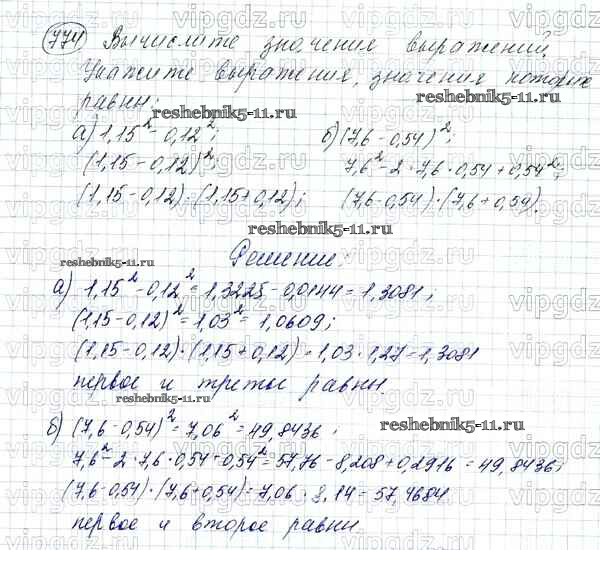 774 Вычислите значения выражений.
Укажите выражения, значения которых
равны:
reshebnik5-11.ru
а) 1,15² - 0,12²;
(1,15 - 0,12)²;
(1,15 - 0,12) · (1,15 + 0,12);
б) (7,6 - 0,54)²;
7,6² - 2 · 7,6 · 0,54 + 0,54²;
(7,6 - 0,54) · (7,6 + 0,54).
reshebnik5-11.ru
Решение:
а) 1,15² - 0,12² = 1,3225 - 0,0144 = 1,3081;
(1,15 - 0,12)² = 1,03² = 1,0609;
(1,15 - 0,12) · (1,15 + 0,12) = 1,03 · 1,27 = 1,3081
первое и третье равны.
reshebnik5-11.ru
б) (7,6 - 0,54)² = 7,06² = 49,8436;
reshebnik5-11.ru
7,6² - 2 · 7,6 · 0,54 + 0,54² = 57,76 - 8,208 + 0,2916 = 49,8436;
(7,6 - 0,54) · (7,6 + 0,54) = 7,06 · 8,14 = 57,4684
первое и второе равны
vipgdz.ru